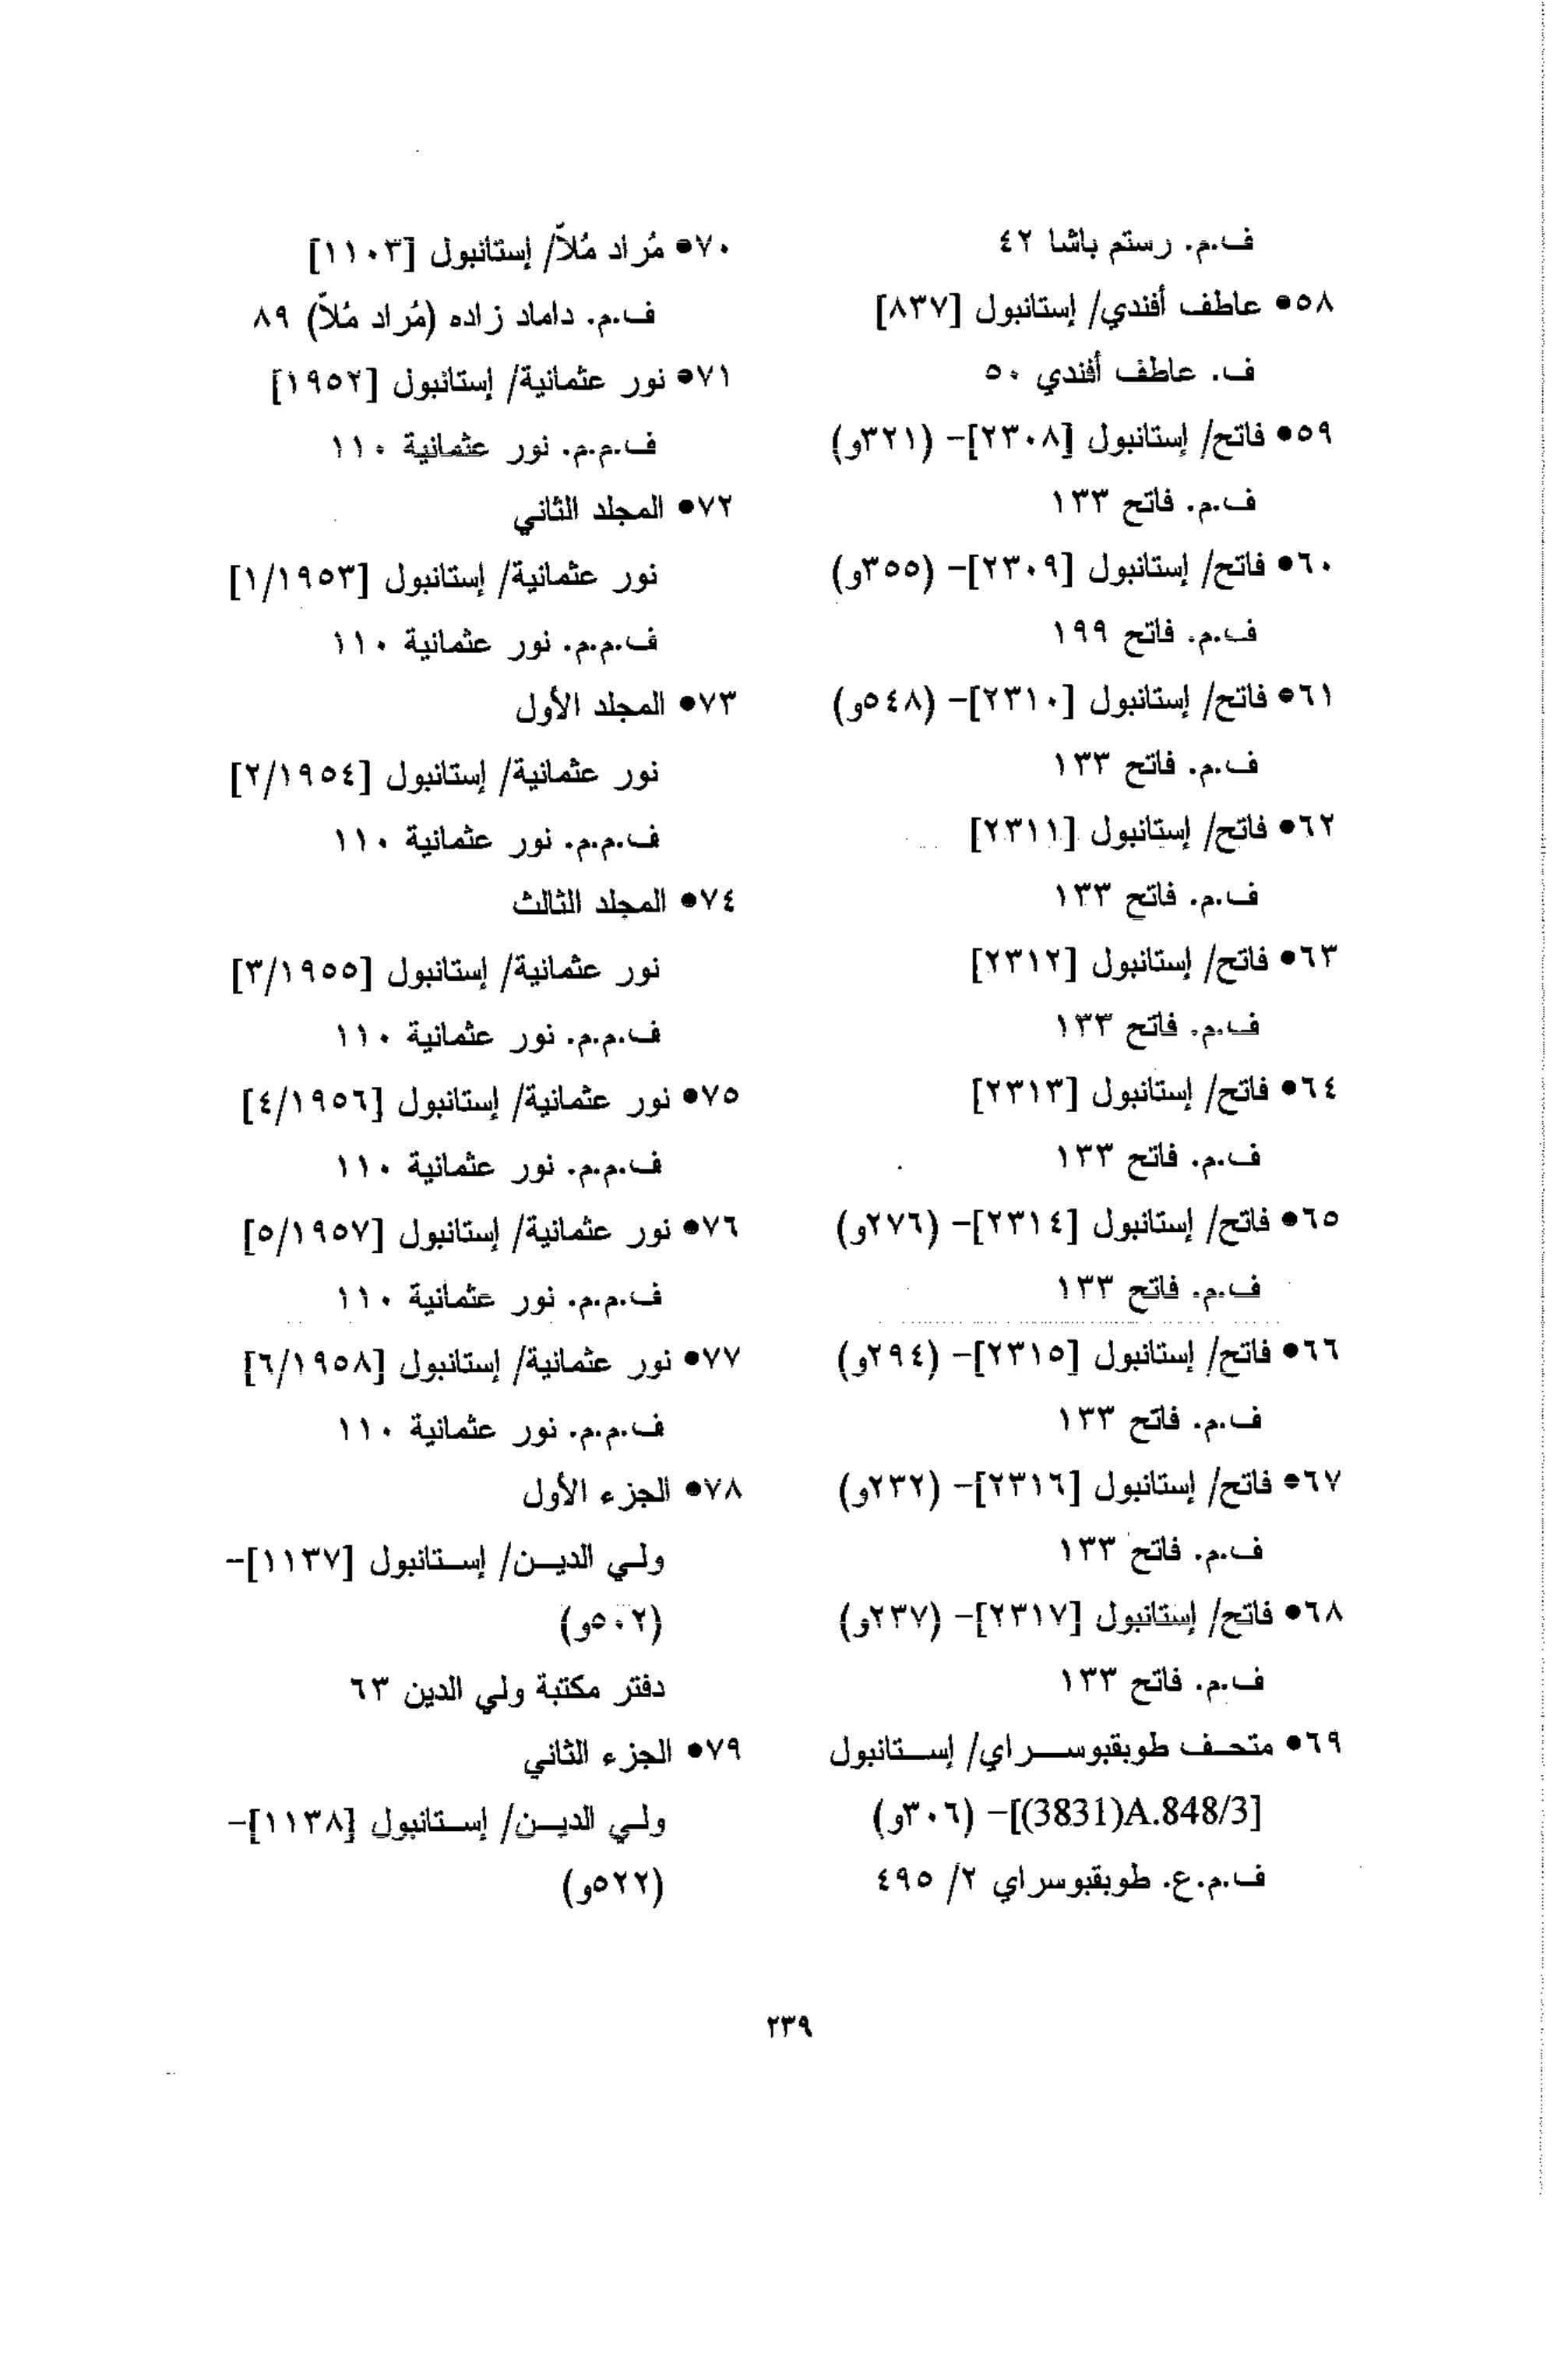 ف.م. رستم باشا ٤٢
٥٨• عاطف أفندي/ إستانبول [٨٣٧]
ف. عاطف أفندي ٥٠
٥٩• فاتح/ إستانبول [٢٣٠٨]- (٣٢١و)
ف.م. فاتح ١٣٣
٦٠• فاتح/ إستانبول [٢٣٠٩]- (٣٥٥و)
ف.م. فاتح ١٩٩
٦١• فاتح/ إستانبول [٢٣١٠]- (٥٤٨و)
ف.م. فاتح ١٣٣
٦٢• فاتح/ إستانبول [٢٣١١]
ف.م. فاتح ١٣٣
٦٣• فاتح/ إستانبول [٢٣١٢]
ف.م. فاتح ١٣٣
٦٤• فاتح/ إستانبول [٢٣١٣]
ف.م. فاتح ١٣٣
٦٥• فاتح/ إستانبول [٢٣١٤]- (٢٧٦و)
ف.م. فاتح ١٣٣
٦٦• فاتح/ إستانبول [٢٣١٥]- (٢٩٤و)
ف.م. فاتح ١٣٣
٦٧• فاتح/ إستانبول [٢٣١٦]- (٢٣٢و)
ف.م. فاتح ١٣٣
٦٨• فاتح/ إستانبول [٢٣١٧]- (٢٣٧و)
ف.م. فاتح ١٣٣
٦٩• متحف طوبقبوسراي/ إستانبول
[(3831)A.848/3]- (٣٠٦و)
ف.م.ع. طوبقبوسراي ٢/ ٤٩٥
٧٠• مُراد مُلاّ/ إستانبول [١١٠٣]
ف.م. داماد زاده (مُراد مُلاّ) ٨٩
٧١• نور عثمانية/ إستانبول [١٩٥٢]
ف.م.م. نور عثمانية ١١٠
٧٢• المجلد الثاني
نور عثمانية/ إستانبول [١/١٩٥٣]
ف.م.م. نور عثمانية ١١٠
٧٣• المجلد الأول
نور عثمانية/ إستانبول [٢/١٩٥٤]
ف.م.م. نور عثمانية ١١٠
٧٤• المجلد الثالث
نور عثمانية/ إستانبول [٣/١٩٥٥]
ف.م.م. نور عثمانية ١١٠
٧٥• نور عثمانية/ إستانبول [٤/١٩٥٦]
ف.م.م. نور عثمانية ١١٠
٧٦• نور عثمانية/ إستانبول [٥/١٩٥٧]
ف.م.م. نور عثمانية ١١٠
٧٧• نور عثمانية/ إستانبول [٦/١٩٥٨]
ف.م.م. نور عثمانية ١١٠
٧٨• الجزء الأول
ولي الدين/ إستانبول [١١٣٧]-
(٥٠٢و)
دفتر مكتبة ولي الدين ٦٣
٧٩• الجزء الثاني
ولي الدين/ إستانبول [١١٣٨]-
(٥٢٢و)
٢٣٩